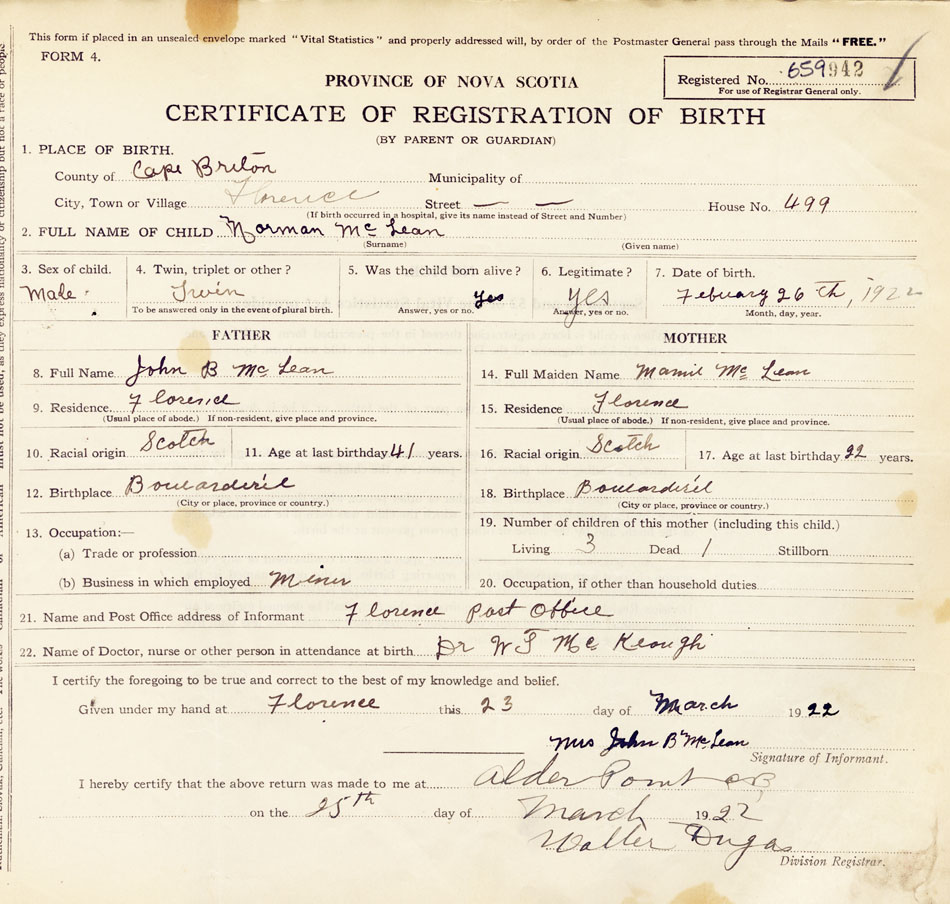 This form if placed in an unsealed envelope marked "Vital Statistics" and properly addressed will, by order of the Postmaster General pass through the Mails "FREE."
FORM 4.
Registered No. 659942
For use of Registrar General only.
PROVINCE OF NOVA SCOTIA
CERTIFICATE OF REGISTRATION OF BIRTH
(BY PARENT OR GUARDIAN)
1. PLACE OF BIRTH.
County of Cape Briton Municipality of
City, Town or Village Florence Street — — House No. 499
(If birth occurred in a hospital, give its name instead of Street and Number)
2. FULL NAME OF CHILD Norman Mc Lean
(Surname) (Given name)
3. Sex of child. 4. Twin, triplet or other? 5. Was the child born alive? 6. Legitimate? 7. Date of birth.
Male Twin Yes yes Febuary 26 Th, 1922
To be answered only in the event of plural birth. Answer, yes or no. Answer, yes or no. Month, day, year.
FATHER
8. Full Name John B Mc Lean
9. Residence. Florence
(Usual place of abode.) If non-resident, give place and province.
10. Racial origin Scotch 11. Age at last birthday 41 years.
12. Birthplace Boularderil
(City or place, province or country.)
13. Occupation:—
(a) Trade or profession
(b) Business in which employed Miner
MOTHER
14. Full Maiden Name Mamie Mc Lean
15. Residence Florence
(Usual place of abode.) If non-resident, give place and province.
16. Racial origin Scotch 17. Age at last birthday 22 years.
18. Birthplace Boularderil
(City or place, province or country.)
19. Number of children of this mother (including this child.)
Living 3 Dead 1 Stillborn
20. Occupation, if other than household duties
21. Name and Post Office address of Informant Florence Post Office
22. Name of Doctor, nurse or other person in attendance at birth Dr W F Mc Keough
I certify the foregoing to be true and correct to the best of my knowledge and belief.
Given under my hand at Florence this 23 day of March 1922
Mrs John B McLean
Signature of Informant.
I hereby certify that the above return was made to me at Alder Point CB
on the 25th day of March 1922
Walter Dugas
Division Registrar.